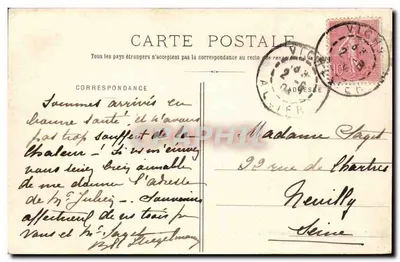 CARTE POSTALE
Tous les pays étrangers n'acceptent pas la correspondance au recto
CORRESPONDANCE
VICHY
ALLIER
Sommes arrivés en
bonne santé et n'avons
pas trop souffert de la
chaleur! 
vous seriez bien aimable
de me donner l'adresse
de Mr Julien. Souvenirs
affectueux de us trois pr
vous et Mr Saget
Madame Saget
22 rue de Chartres
Neuilly
Seine